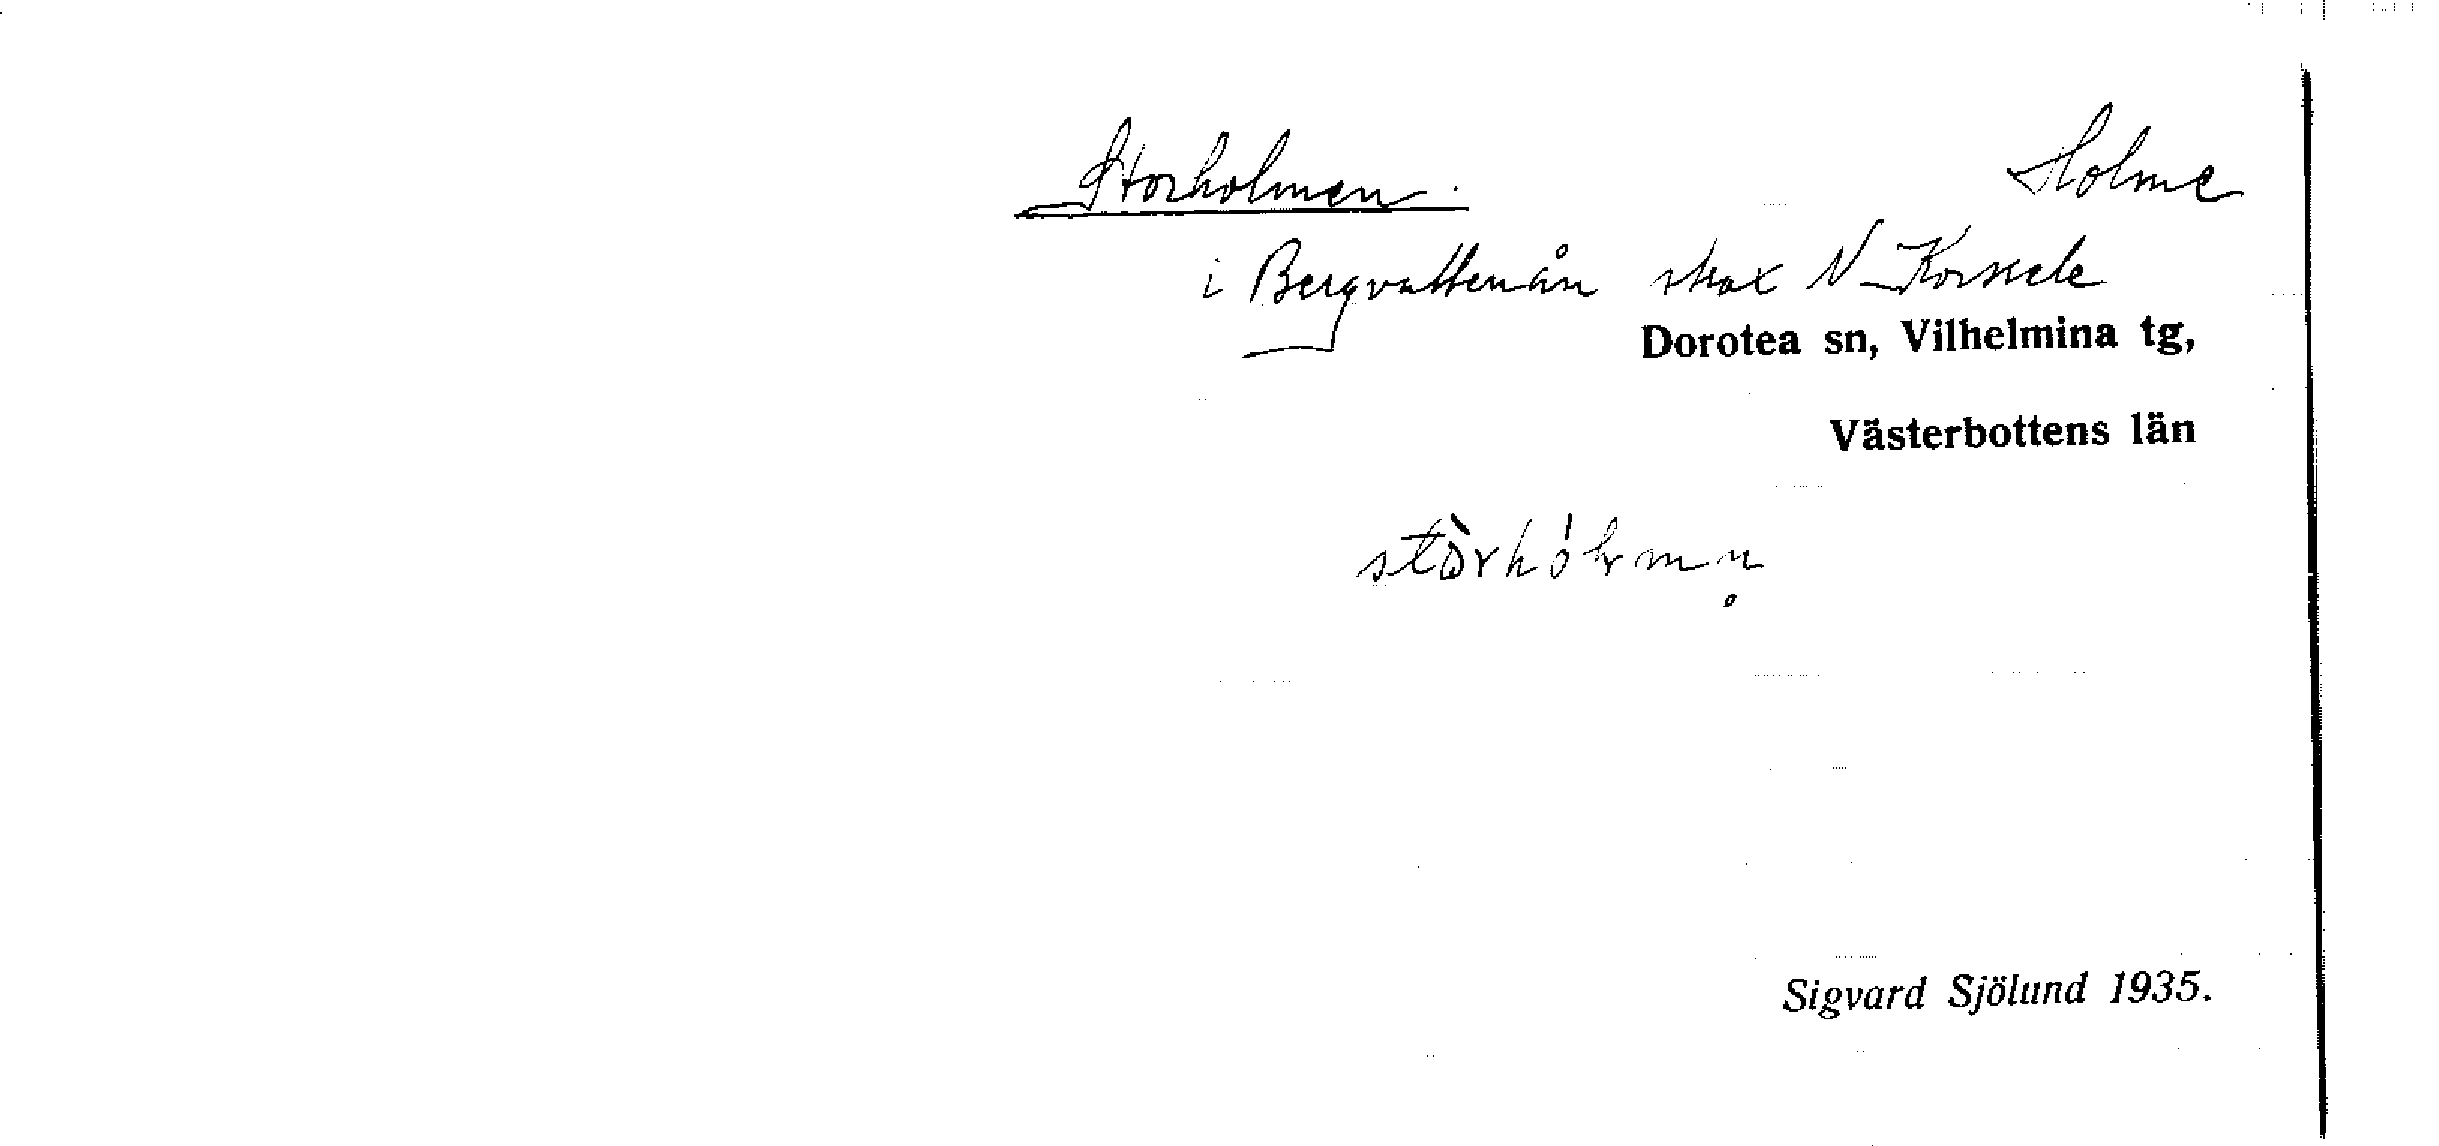 Storholmen. Holme
i Bergvattenån strax N Korsele
Dorotea sn, Vilhelmina tg,
Västerbottens län
Sigvard Sjölund 1935.